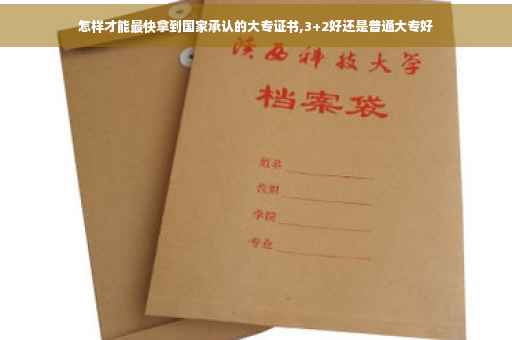 怎样才能最快拿到国家承认的大专证书,3+2好还是普通大专好
陕西科技大学
档案袋
姓名
学院
专业